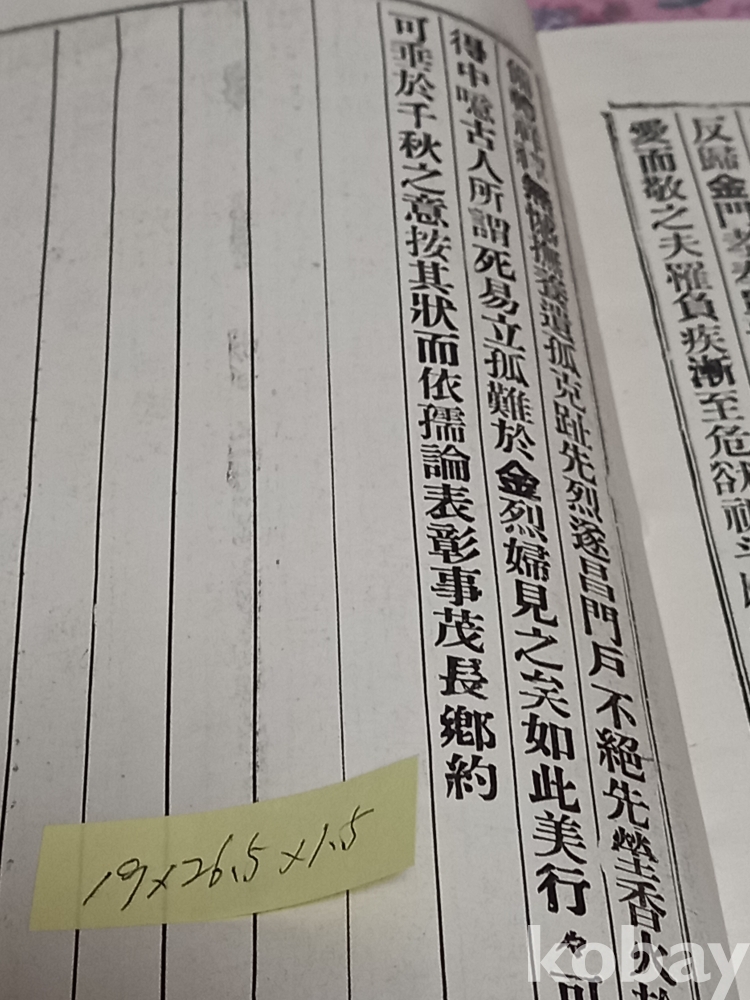 反歸金門孝奉
愛而敬之夫罹負疾漸至危欲視
無憾撫養遺孤克趾先烈遂昌門戶不絕先塋香火
得中噫古人所謂死易立孤難於金烈婦見之矣如此美行
可垂於千秋之意按其狀而依孺論表彰事茂長鄉約
19×26.5×1.5
kobay